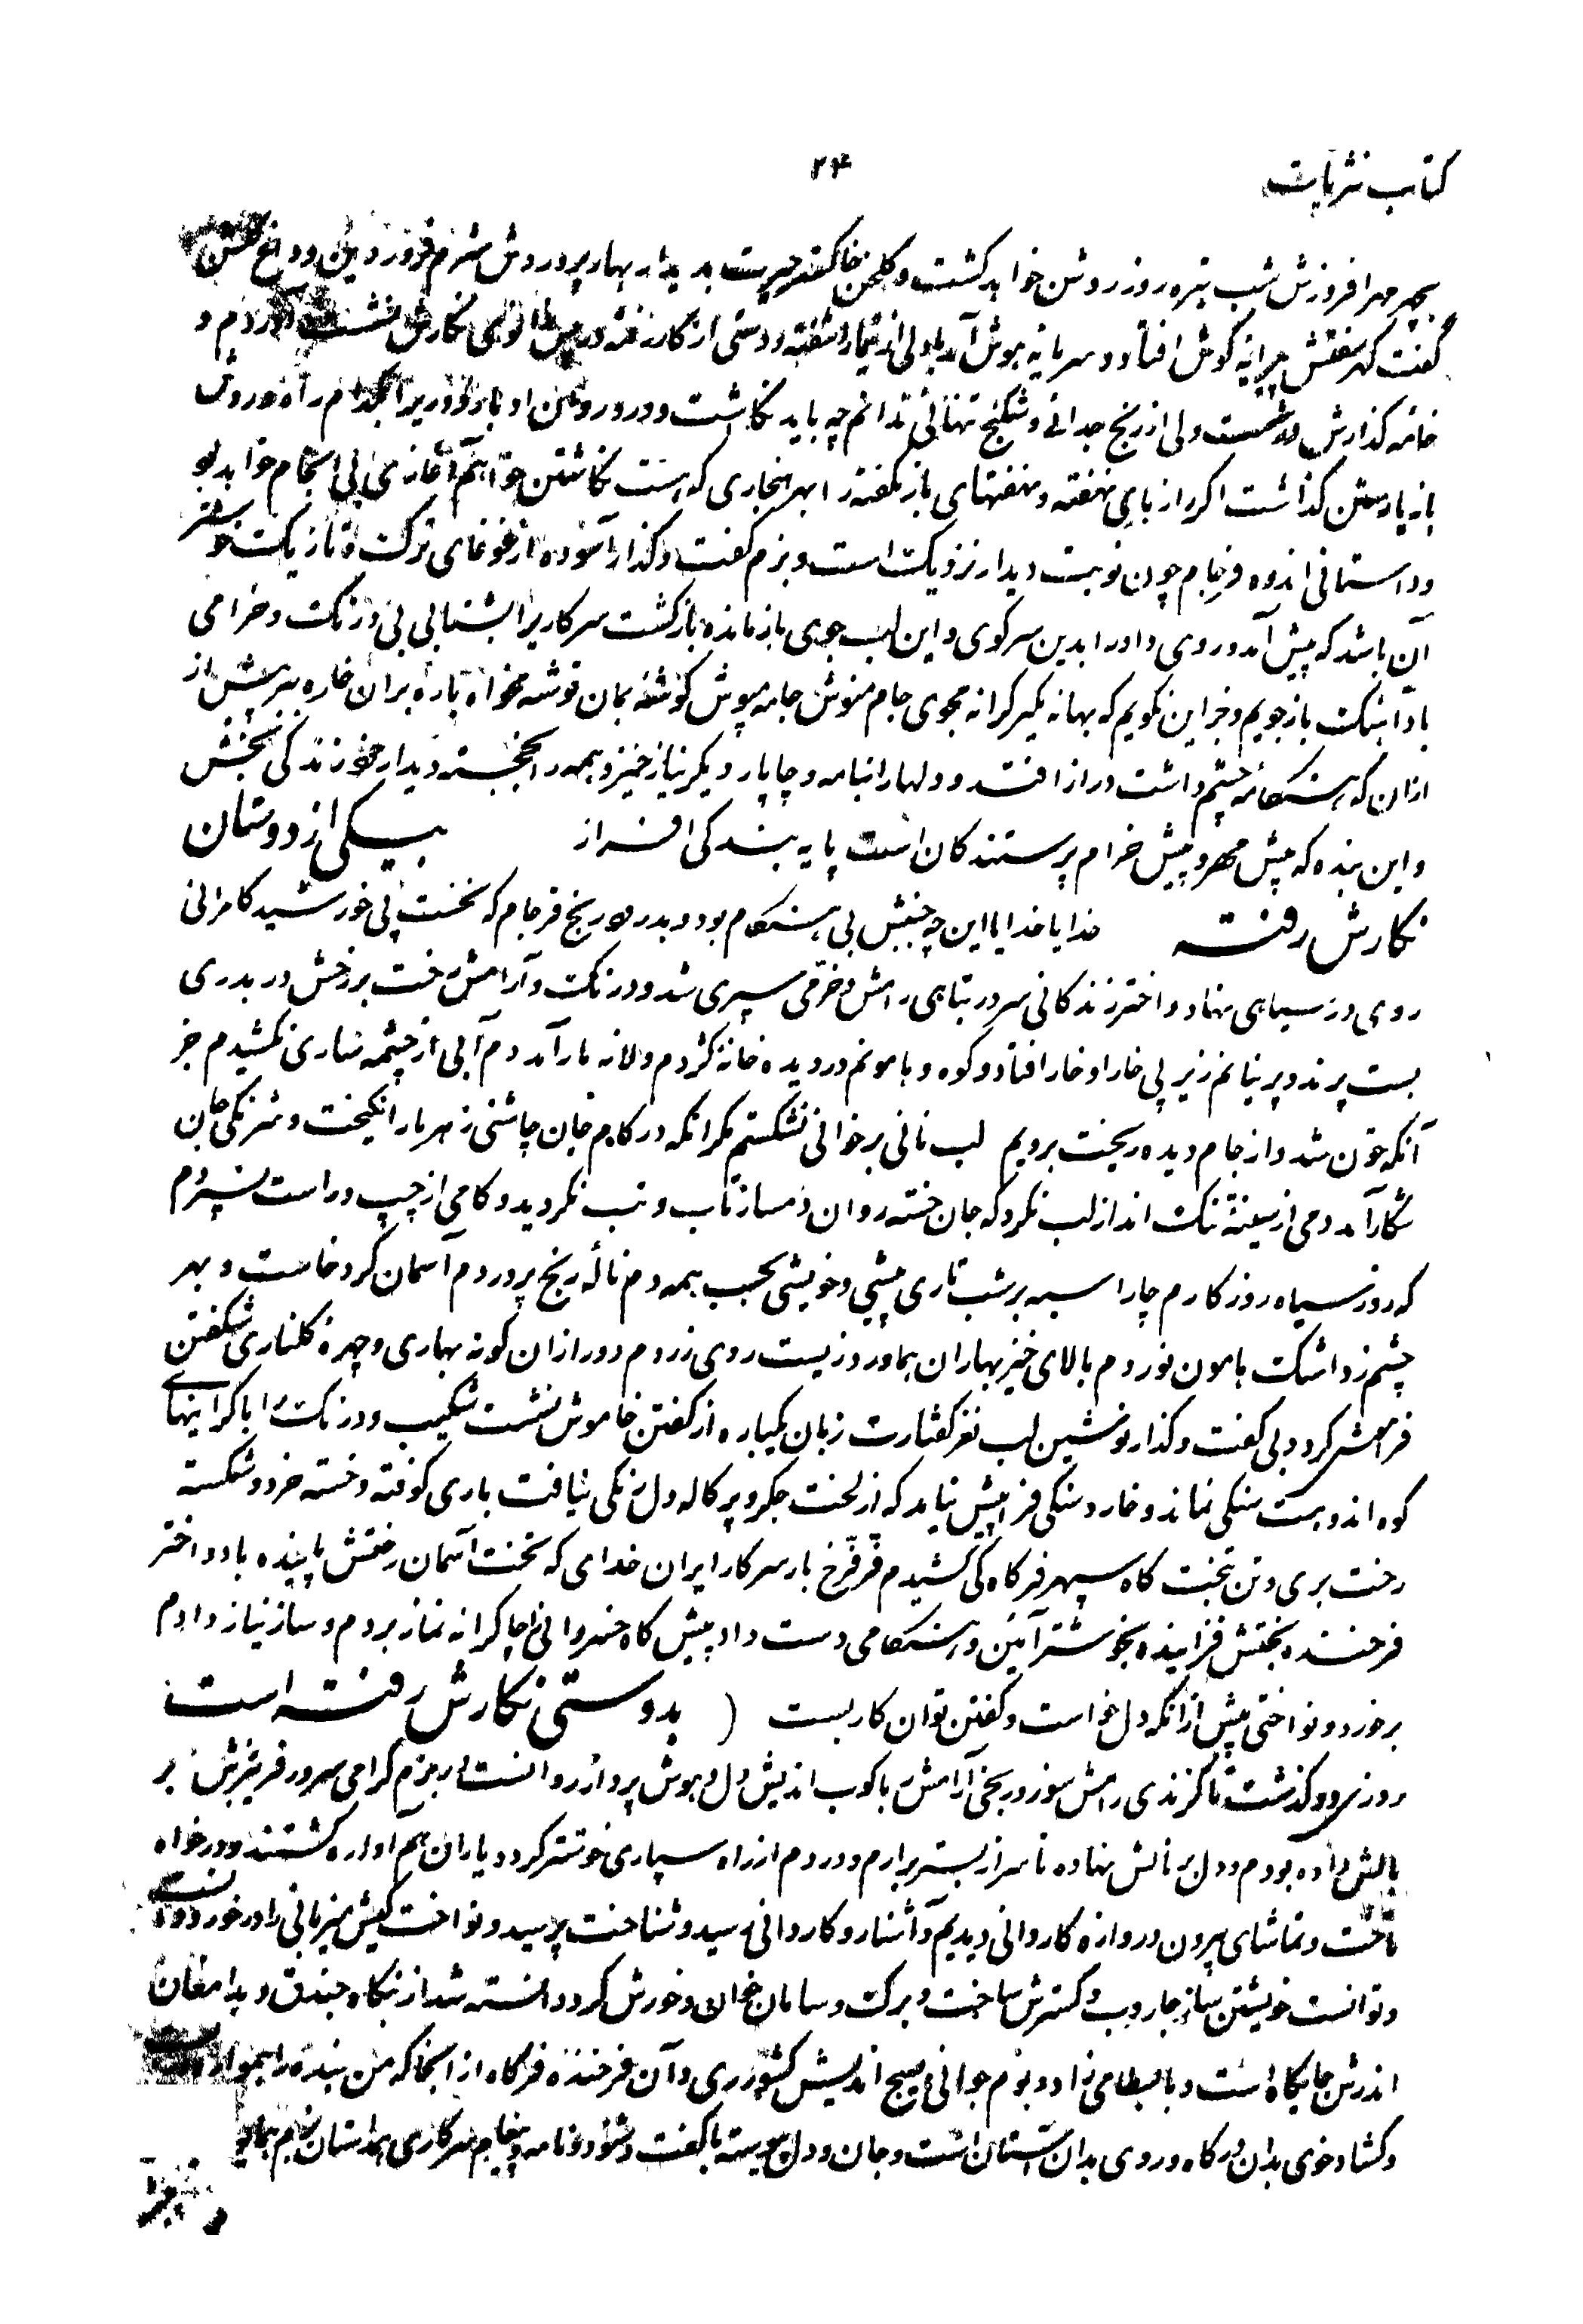 کتاب نثریات
۲۴
بچهر مهر افروزش شب تیره روز روشن خواهد گشت و گلخن خاکستر چهرت بدیدار بهار پرورش شرم فروردین و داغ گلشن
گفت گهر سفتش پیرایه گوش افتاد و سرمایه هوش آمد با دلی از تیمار آشفته و دستی از کار رفته در پس زانوی نگارش نشست آوردم و
خامه گذارش در شست ولی از رنج جدائی و شکنج تنهائی ندانم چه باید نگاشت و درود روشن او بار دوریرا بکدام راه و روش
باز یارستن گذاشت اگر از بای نهفته و نهفتهای باز نگفته را بهر هنجاری که هست نگاشتن خواهم آغازی بی انجام خواهد بود
و داستانی اندوه فرجام چون نوبت دیدار نزدیک است و بزم گفت و گذار آسوده از غوغای ترک و تازیک خوشتر
آن باشد که پیش آمد و روی داد را بدین سر کوی و این لب جوی باز مانده بازگشت سرکار یرا بشتابی بی درنگ و خرامی
باد آهنگ باز جویم و جز این نگویم که بهانه مگیر کرانه مجوی جام منوش جامه مپوش گوشه ممان توشه مخواه باره بران خاره ببر پیش از
ازان که هنگامه چشم داشت دراز افتد و دلها را نیامه و چاپار دیگر نیاز خیزد همه را بخجسته دیدار خود زندگی بخش
و این بنده که پیش مهر و پیش خرام پرستندگان است پایه بندگی افراز بیکی از دوستان
نگارش رفته خدایا خدایا این چه جنبش بی هنگام بود و بدرود رنج فرجام که نخست پی خورشید کامرانی
روی در سیاهی نهاد و اختر زندگانی سر در تباهی رامش و خرمی سپری شد و درنگ و آرامش رخت بر رخش دربدری
بست پرند و پرنیانم زیر پی خار او خار افتاد و کوه و هامونم در دیده خانه کژدم و لانه مار آمد دم آبی از چشمه ساری نکشیدم جز
آنکه خون شد و از جام دیده ریخت برویم لب نانی بر خوانی نشکستم مگر آنکه در کام جان چاشنی زهر مار انگیخت و شرنگی جان
شکار آمد دمی از سینه تنگ انداز لب نکرد که جان خسته روان دمساز تاب و تب نگردید و گامی از چپ و راست نسپردم
که روز سیاه روزگارم چار اسبه بر شب تاری پیشی و خویشی نجست همه دم ناله رنج پروردم آسمان گرد خاست و بهر
چشم زد اشک هامون نوردم بالای خیز بهاران بماورد زیست روی زردم دور از ان گونه بهاری و چهره گلناری شگفتن
فرامش کرد و بی گفت و گذار نوشین لب نغز گفتارت زبان یکباره از گفتن خاموش نشست شکیب و درنگ را با گرانیهای
کوه اندوهت سنگی نماند و خار و سنگی فرا پیش نیاید که از لخت جگر و پرکاله دل رنگی نیافت باری کوفته و خسته خرد و شکسته
رخت بری و تن تخت گاه سپهر فرگاه کی کشیدم فر فرخ بار سرکار ایران خدای که تخت آسمان رختش پاینده باد و اختر
فرخنده بختش فزاینده بخوشتر آئین و هنگامی دست داد پیش گاه خسروانی را چاکرانه نماز بردم و ساز نیاز دادم
برخورد و نواختی بیش از آنکه دل خواست و گفتن توان کار بست ( بدوستی نگارش رفته است
روز سرود گذشت تا گزندی رامش سوز و رنجی آرامش کوب اندیش دل و هوش پرداز روانست بر بزم گرامی سرور فریبرزش بر
بالش داده بودم و دل بر نالش نهاده تا سر از بستر برآرم و دردم از راه سپاری خوشتر گردد یاران هم اواره گشتند و در خواه
تاخت و تماشای بیرون دروازه کاروانی دیدیم و آشنا رو کاروانی رسید و شناخت پرسید و نواخت کیش میزبانی را در خورد
و توانست خویشتن ساز جاروب و گسترش ساخت و برگ و سامان خوان و خورش کرد دانسته شد از بنگاه جندق و بدامغان
اندرش جایگاه است و با بسطامی نژاد و بوم جوانی بسیج اندیش کشور ری و آن فرخنده فرگاه از آنجا که من بنده را همواره
و گشاد خوی بدان درگاه و روی بدان آستان است و جان و دل پیوسته با گفت و شنود و نامه و پیغام سرکاری همداستان